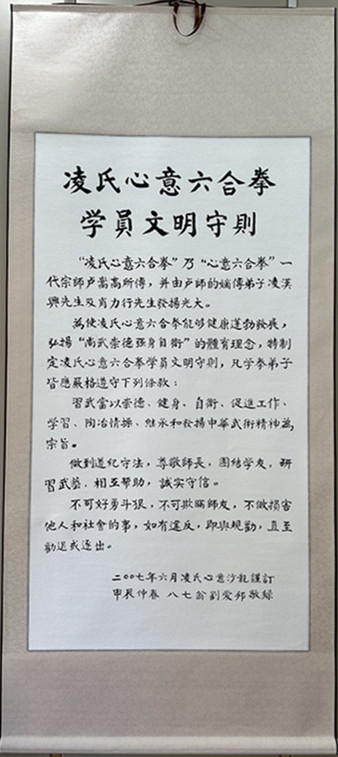 凌氏心意六合拳
学員文明守則
“凌氏心意六合拳”乃“心意六合拳”一
代宗師卢嵩高所傳，并由卢師的嫡傳弟子凌漢
興先生及肖力行先生發揚光大。
為使凌氏心意六合拳能够健康蓬勃發展，
弘揚“尚武崇德强身自衛”的體育理念，特制
定凌氏心意六合拳学員文明守則，凡学拳弟子
皆應嚴格遵守下列條款：
習武當以崇德、健身、自衛、促進工作、
学習、陶冶情操、继承和發揚中華武術精神為
宗旨。
做到遵纪守法，尊敬師長，團结学友，研
習武藝，相互幫助，誠实守信。
不可好勇斗狠，不可欺瞞師友，不做損害
他人和社會的事，如有違反，即與規勸，直至
勸退或逐出。
二〇〇七年六月凌氏心意沙龍謹訂
甲辰仲春 八七翁劉愛邦敬録